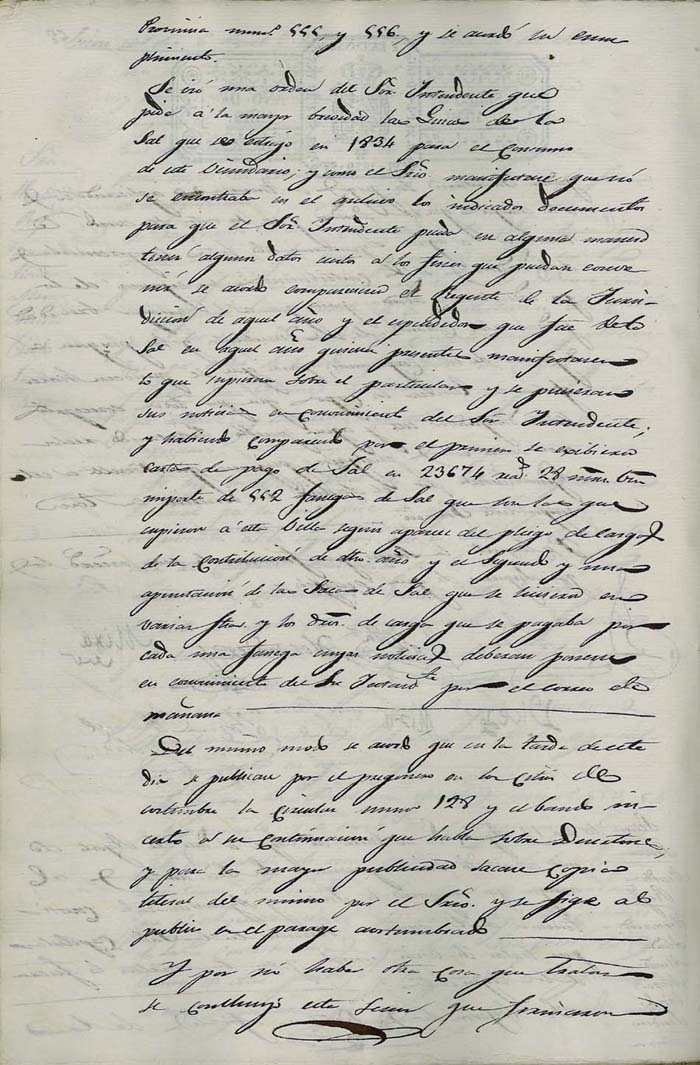 Provincia num.s 555, y 556, y se acordó su cum
plimiento.
Se vió una órden del Sor. Intendente que
pide á la mayor brevedad las Guias de la
Sal que se estrajo en 1834 para el consumo
de este Vecindario; y como el Srio. manifestase que nó
se encontraba en el archivo los indicados documentos
para que el Sor. Intendente pueda en alguna manera
tener algunos datos ciertos á los fines que puedan conve
nir se acordo compareciera el Regente de la Juris-
diccion de aquel año y el espendedor que fue de la
Sal en aquel año quienes presentes manifestaren
lo que supieran sobre el particular y se pusieran
sus noticias en conocimiento del Sor Intendente;
y habiendo comparecido por el primero se exibieron
cartas de pago de Sal en 23674 rea.s 28 mrs. vn.
importe de 552 fanegas de Sal que son las que
cupieron á esta Villa segun aparece del pliego de cargos
de la contribucion de dho. año y el Segundo
apuntacion de las Sacas de Sal que se hicieron en
varias y los de carga que se pagaba por
cada una fanega cuyas noticias deberan ponerse
en conocimiento del Sr Intend.te por el correo de
mañana
Del mismo modo se acordó que en la tarde de este
dia se publicase por el pregonero en los citios de
costumbre la Circular num.o 128 y el bando in-
certo á su continuacion que habla sobre Desertores,
y para la mayor publicidad sacase copia
literal del mismo por el Srio. y se fige al
publico en el parage acostumbrado
Y por nó haber otra cosa que tratar
se concluyó esta Secion que firmaron